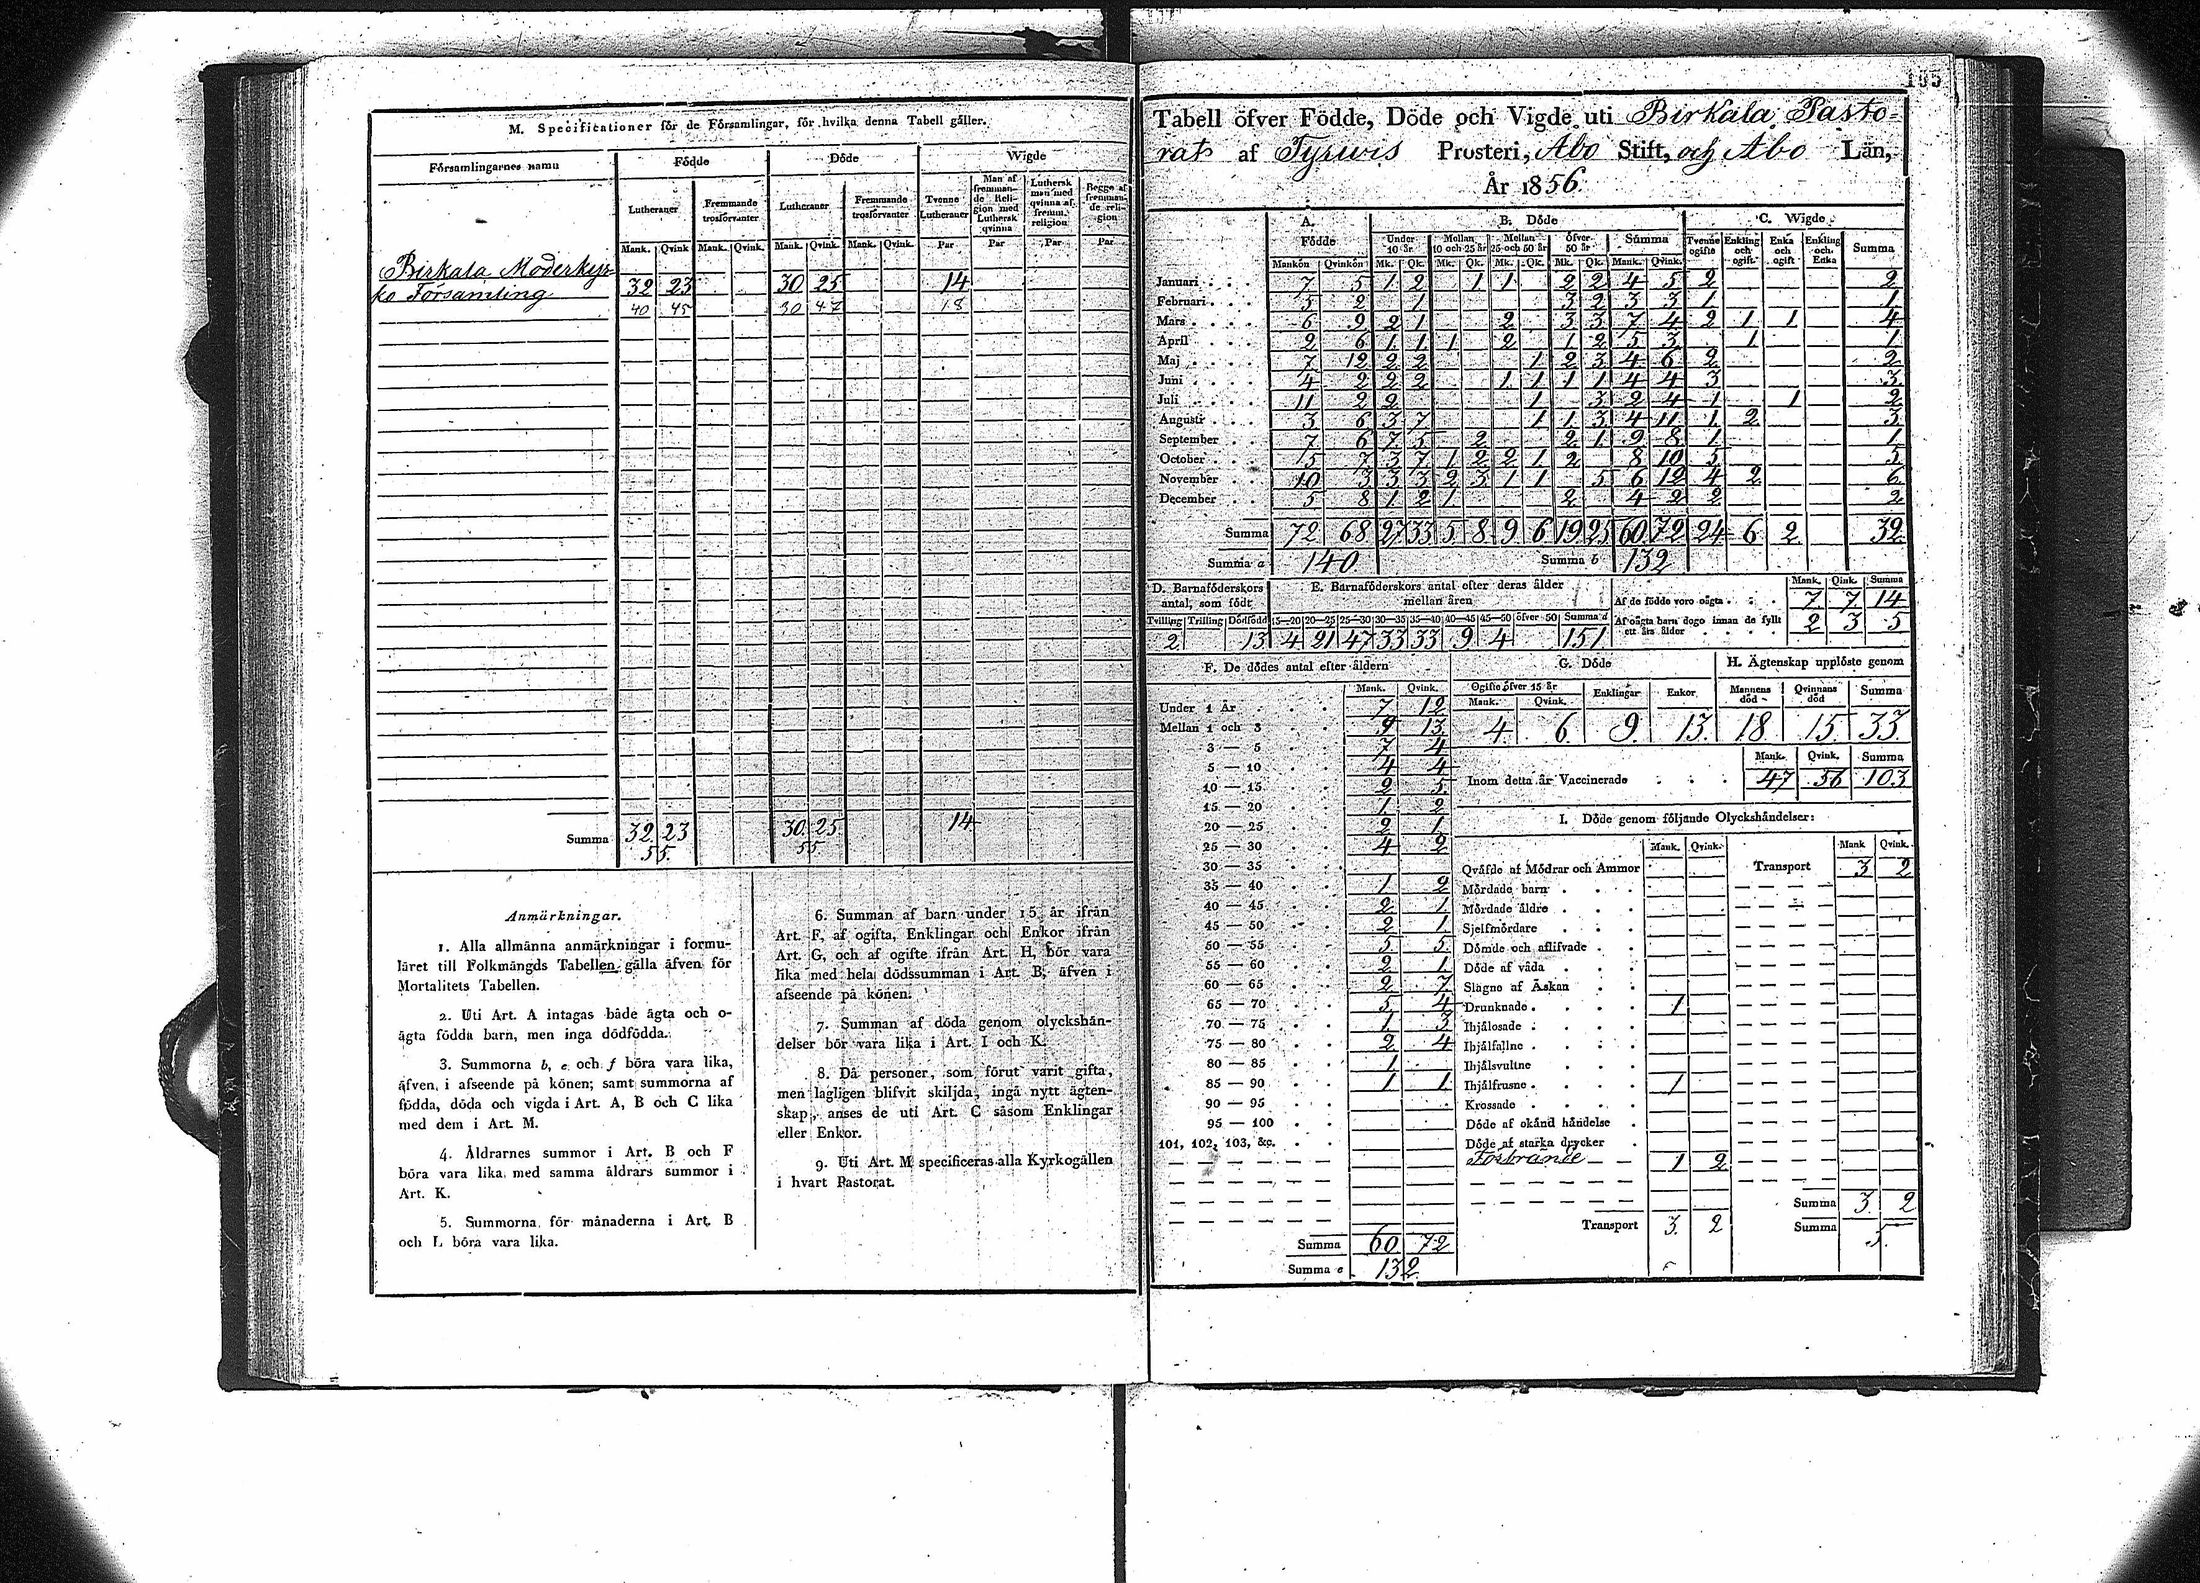 M. Specificationer för de Församlingar, för hvilka denna Tabell gäller.
Församlingarnes namn Födde Döde Wigde
Lutheraner Fremmande trosförvanter Lutheraner Fremmande trosförvanter Tvenne Lutheraner Man af fremmande Religion med Luthersk qvinna Luthersk man med qvinna af fremm. religion Begge af fremmande religion
Mank. Qvink Mank. Qvink. Mank. Qvink. Mank. Qvink. Par Par Par Par
Birkala Moderkyr
ko Församling 32 23 30 25 14
40 45 30 47 18
Summa 32 23 30 25 14
55 55
Anmärkningar.
1. Alla allmänna anmärkningar i formu-
läret till Folkmängds Tabellen gälla äfven för
Mortalitets Tabellen.
2. Uti Art. A intagas både ägta och o-
ägta födda barn, men inga dödfödda.
3. Summorna b, e och f böra vara lika,
äfven i afseende på könen; samt summorna af
födda, döda och vigda i Art. A, B och C lika
med dem i Art. M.
4. Åldrarnes summor i Art. B och F
böra vara lika med samma åldrars summor i
Art. K.
5. Summorna för månaderna i Art. B
och L böra vara lika.
6. Summan af barn under 15 år ifrån
Art. F, af ogifta, Enklingar och Enkor ifrån
Art. G, och af ogifte ifrån Art. H, bör vara
lika med hela dödssumman i Art. B; äfven i
afseende på könen.
7. Summan af döda genom olyckshän-
delser bör vara lika i Art. I och K.
8. Då personer, som förut varit gifta,
men lagligen blifvit skiljda, ingå nytt ägten-
skap, anses de uti Art. C såsom Enklingar
eller Enkor.
9. Uti Art. M specificeras alla Kyrkogällen
i hvart Pastorat.
195
Tabell öfver Födde, Döde och Vigde uti Birkala Pasto-
rat af Tyrwis Prosteri, Åbo Stift, och Åbo Län,
År 1856
A. Födde B. Döde C. Wigde
Under 10 år Mellan 10 och 25 år Mellan 25 och 50 år öfver 50 år Summa Tvenne ogifte Enkling och ogift Enka och ogift Enkling och Enka Summa
Mankön Qvinkön Mk. Qk. Mk. Qk. Mk. Qk. Mk. Qk. Mank. Qvink.
Januari 7 5 1 2 1 1 2 2 4 5 2 2
Februari 5 2 1 3 2 3 3 1 1
Mars 6 9 2 1 2 3 3 7 4 2 1 1 4
April 2 6 1 1 1 2 1 2 5 3 1 1
Maj 7 12 2 2 1 2 3 4 6 2 2
Juni 4 2 2 2 1 1 1 1 4 4 3 3
Juli 11 2 2 1 3 2 4 1 1 2
Augusti 3 6 3 7 1 1 3 4 11 1 2 3
September 7 6 7 5 2 2 1 9 8 1 1
October 5 7 3 7 1 2 2 1 2 8 10 5 5
November 10 3 3 3 2 3 1 1 5 6 12 4 2 6
December 5 8 1 2 1 2 4 2 2 2
Summa 72 68 27 33 5 8 9 6 19 25 60 72 24 6 2 32
Summa a 140 Summa b 132
D. Barnaföderskors antal, som födt
Tvilling Trilling Dödfödd
2 13
E. Barnaföderskors antal efter deras ålder mellan åren
15—20 20—25 25—30 30—35 35—40 40—45 45—50 öfver 50 Summa d
4 21 47 33 33 9 4 151
Mank. Qink. Summa
Af de födde voro oägta 7 7 14
Af oägta barn dogo innan de fyllt ett års ålder 2 3 5
F. De dödes antal efter åldern
Mank. Qvink.
Under 1 År 7 12
Mellan 1 och 3 9 13
3 — 5 7 4
5 — 10 4 4
10 — 15 2 5
15 — 20 1 2
20 — 25 2 1
25 — 30 4 2
30 — 35
35 — 40 1 2
40 — 45 2 1
45 — 50 2 1
50 — 55 5 5
55 — 60 2 1
60 — 65 2 7
65 — 70 5 4
70 — 75 1 3
75 — 80 2 4
80 — 85 1
85 — 90 1 1
90 — 95
95 — 100
101, 102, 103, &c.
Summa 60 72
Summa e 132
G. Döde
Ogifte öfver 15 år Enklingar Enkor
Mank. Qvink.
4 6 9 13
H. Ägtenskap upplöste genom
Mannens död Qvinnans död Summa
18 15 33
Mank. Qvink. Summa
Inom detta år Vaccinerade 47 56 103
I. Döde genom följande Olyckshändelser:
Mank. Qvink. Mank Qvink.
Qväfde af Mödrar och Ammor Transport 3 2
Mördade barn
Mördade äldre
Sjelfmördare
Dömde och aflifvade
Döde af våda
Slagne af Åskan
Drunknade 1
Ihjälosade
Ihjälfallne
Ihjälsvultne
Ihjälfrusne 1
Krossade
Döde af okänd händelse
Döde af starka drycker
Förbrände 1 2
Summa 3 2
Transport 3 2 Summa 5